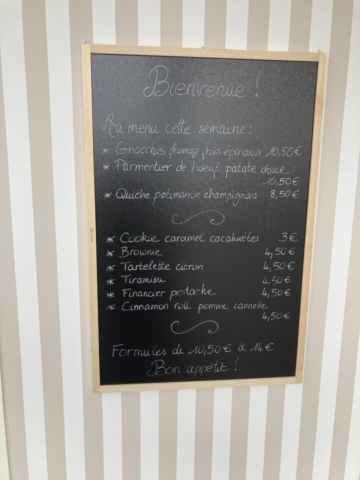 Bienvenue !
Au menu cette semaine :
* Gnocchis fromage frais épinards 10,50€
* Parmentier de boeuf patate douce
10,50€
* Quiche potimarron champignons 8,50€
* Cookie caramel cacahuètes 3€
* Brownie 4,50€
* Tartelette citron 4,50€
* Tiramisu 4,50€
* Financier pistache 4,50€
* Cinnamon roll pomme cannelle
4,50€
Formules de 10,50€ à 14€
Bon appétit !